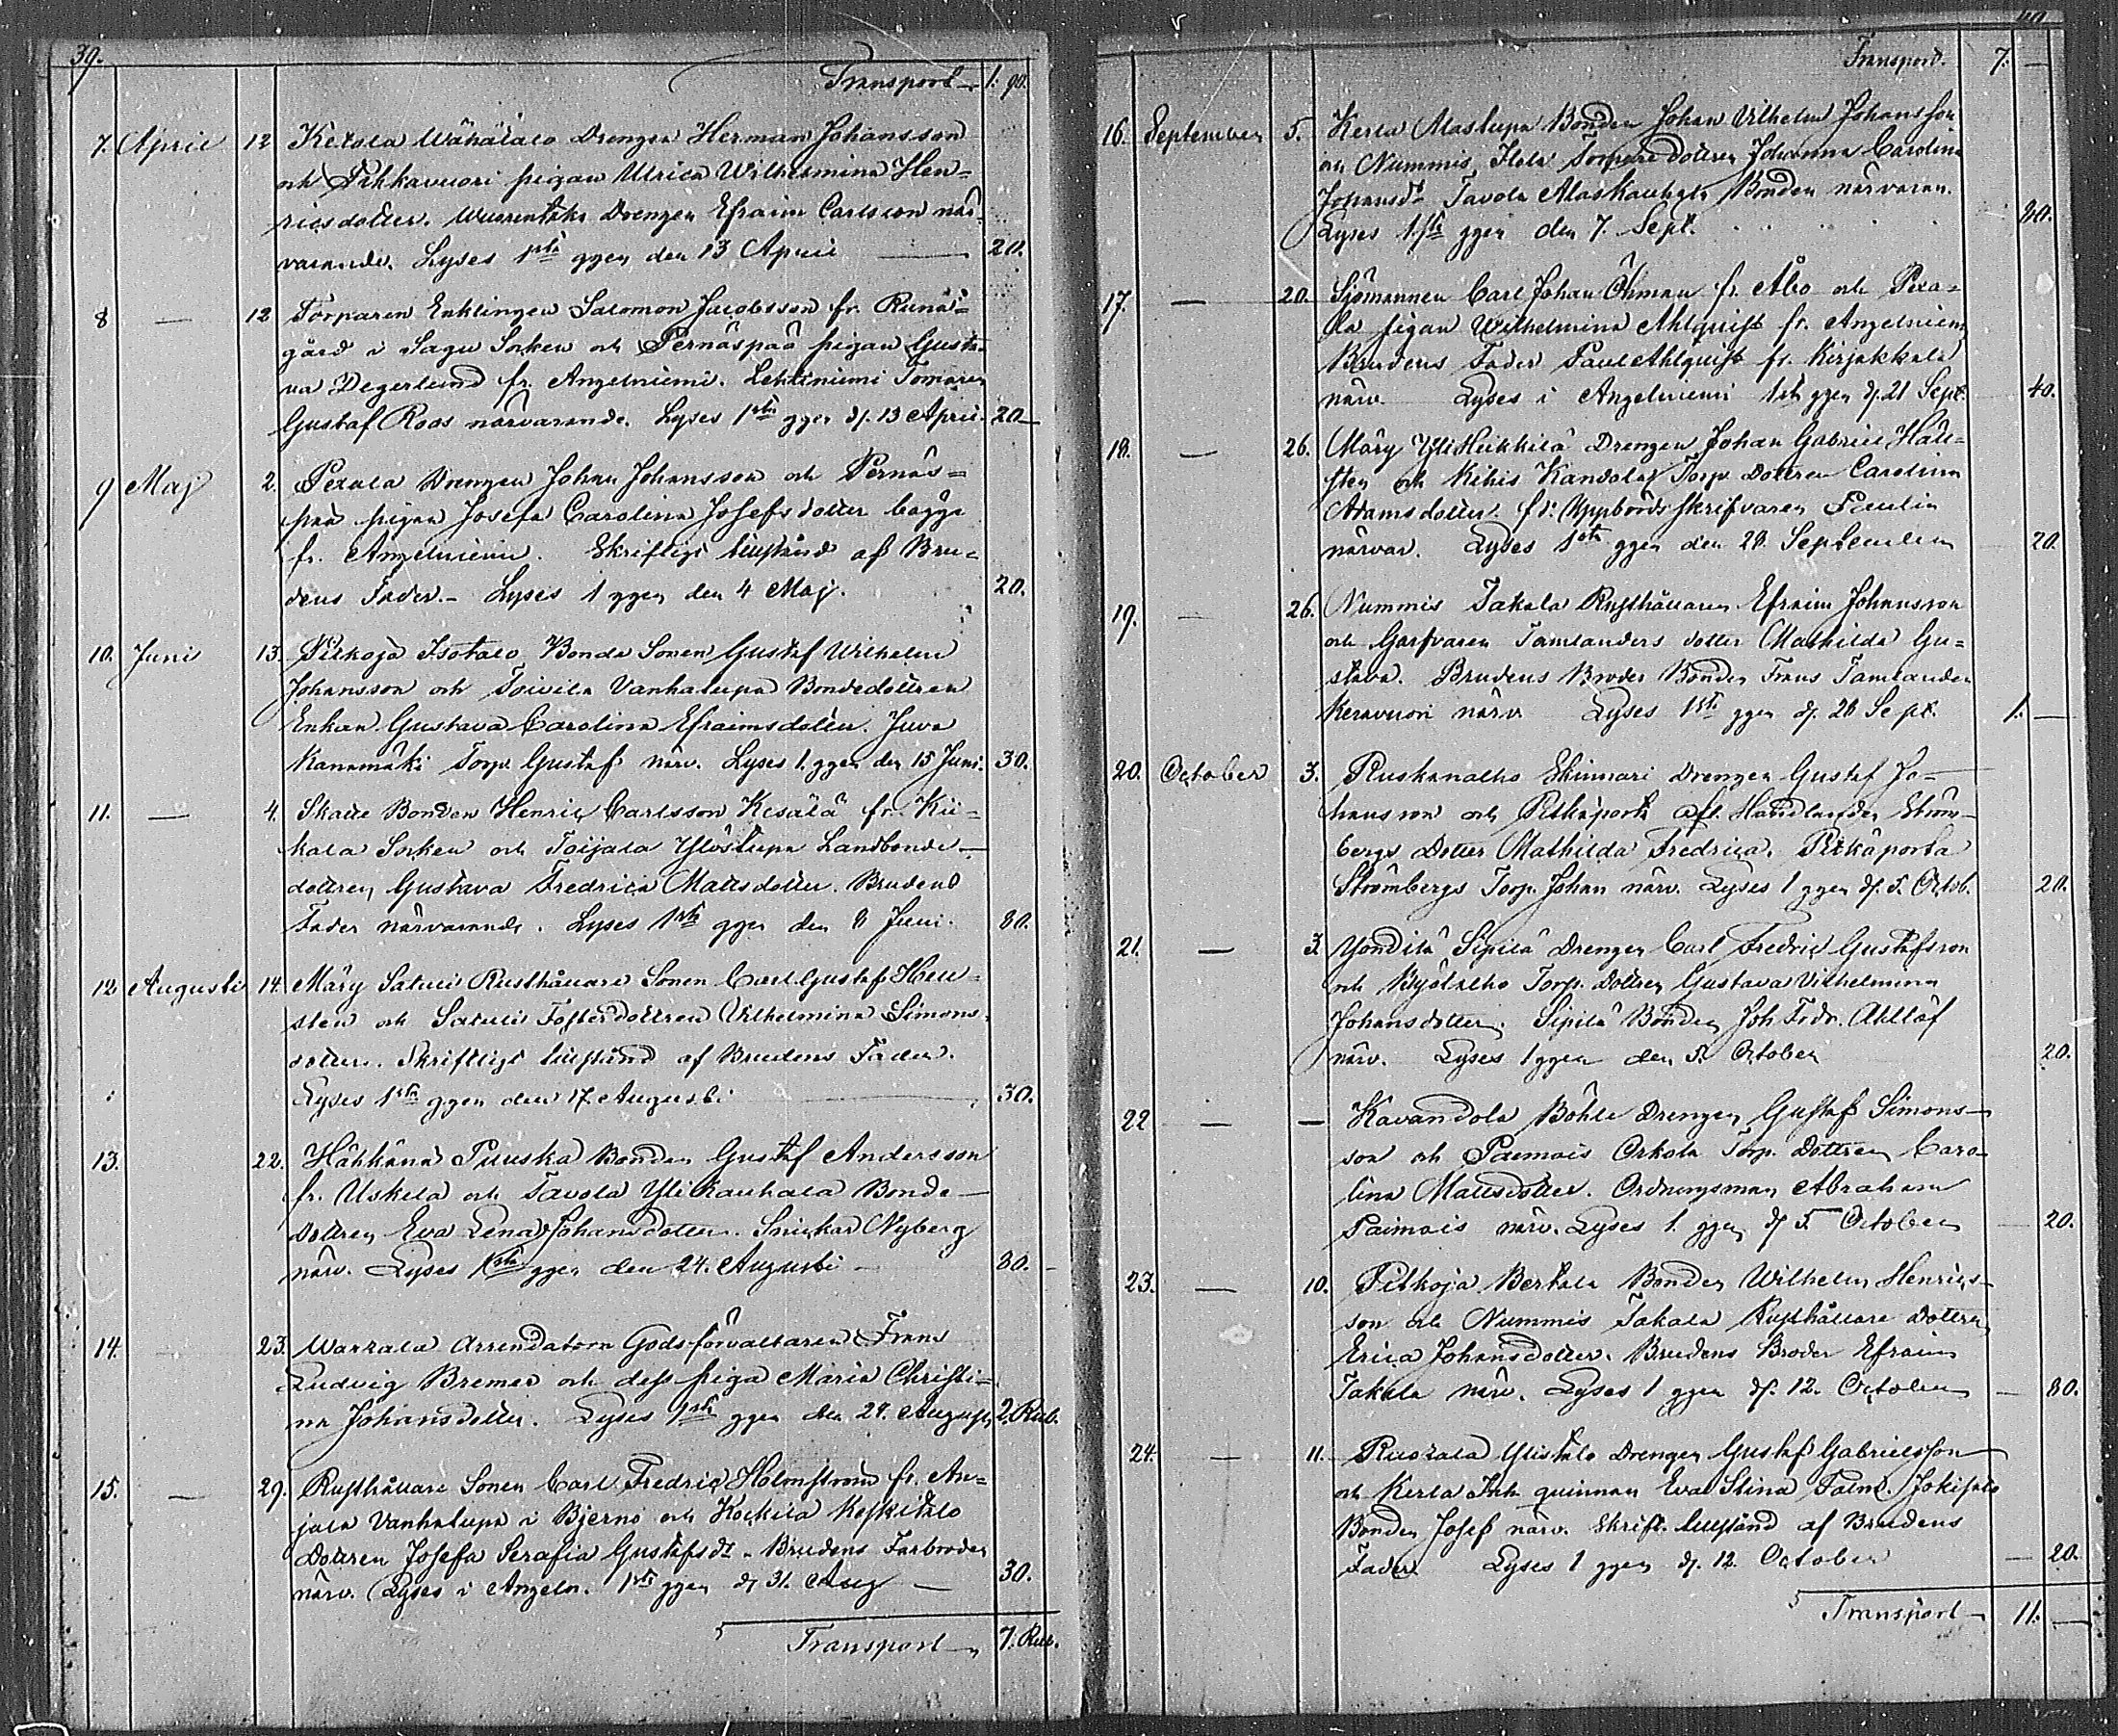 39.
Transport 1. 90.
7. April 12 Ketola Wähätalo Drengen Herman Johansson
och Pihkavuori pigan Ulrica Wilhelmina Hen=
ricsdotter. Wuorentaka Drengen Efraim Carlsson när-
varande. Lyses 1sta ggen den 13 April 20.
8 — 12 Torparen Enklingen Salomon Jacobsson fr. Runa=
gård i Sagu Socken och Pernäspää pigan Gusta-
va Degerlund fr. Angelniemi. Lehtiniemi Tomaren
Gustaf Roos närvarande. Lyses 1sta ggen d. 13 April. 20
9 Maj 2. Pexala Drengen Johan Johansson och Pernäs=
pää pigan Josefa Carolina Josefsdotter bägge
fr. Angelniemi. Skriftligt tillstånd af Bru=
dens Fader. — Lyses 1 ggen den 4 Maj. 20.
10. Juni 13. Pitkoja Isotalo Bonde Sonen Gustaf Wilhelm
Johansson och Toivila Vanhatupa Bondedottren
Enkan Gustava Carolina Efraimsdotter. Juva
Kanamäki Torp. Gustaf närv. Lyses 1. ggen den 15 Juni. 30.
11. — 4. Skatte Bonden Henric Carlsson Kesälä fr. Kii=
kala Socken och Toijala Ylöstupa Landbonde
dottren Gustava Fredrica Mattsdotter. Brudens
Fader närvarande. Lyses 1sta ggen den 8 Juni. 80.
12 Augusti 14. Märy Satuli Rusthållare Sonen Carl Gustaf Hell=
sten och Satuli Fosterdottren Vilhelmina Simons-
dotter. Skriftligt tillstånd af Brudens Fader.
Lyses 1sta ggen den 17 Augusti 30.
13. 22. Hähkänä Puuska Bonden Gustaf Andersson
fr. Uskela och Tavola Ylikauhala Bonde
dottren Eva Lena Johansdotter. Snickar Nyberg
närv. Lyses 1sta ggen den 24. Augusti 80.
14. 23. Warrala Arrendatorn Godsförvaltaren Frans
Ludvig Bremer och dess piga Maria Christi=
na Johansdotter. Lyses 1sta ggen den 24. Augusti 2. Rub.
15. — 29. Rusthållare Sonen Carl Fredric Holmström fr. An=
jala Vanhatupa i Bjerno och Kockila Keskitalo
Dottren Josefa Serafia Gustafsdr. Brudens Farbroder
närv. Lyses i Angeln. 1sta ggen d 31. Aug 30.
Transport 7. Rub.
Transport. 7. —
16. September 5. Kerla Alastupa Bonden Johan Vilhelm Johansson
och Nummis Torpare dottren Johanna Carolina
Johansdr Tavola Alaskauhala Bonden närvaran.
Lyses 1sta ggen den 7. Sept. 80.
17. — 20. Sjömannen Carl Johan Öhman fr. Åbo och Pexa=
la pigan Wilhelmina Ahlquist fr. Angelniemi
Brudens Fader Paul Ahlquist fr. Kirjakkala
närv Lyses i Angelniemi 1sta ggen d. 21 Sept. 40.
18. — 26. Märy Yli Heikkilä Drengen Johan Gabriel Häll=
sten och Kihis Kandola Torp. dottren Carolina
Adamsdotter. fr: Uppbördsskrifvaren Paulin
närvar. Lyses 1sta ggen den 28. September 20.
19. 26. Nummis Takala Rusthållaren Efraim Johansson
och Garfvaren Tamlanders dotter Mathilda Gu=
stava. Brudens Broder Bonden Frans Tamlander
Keravuori närv Lyses 1sta ggen d. 28 Sept. 1. —
20. October 3. Ruskanalho Skinnari Drengen Gustaf Jo=
hansson och Pitkäporta afl. Handlanden Ström-
bergs Dotter Mathilda Fredrica. Pitkäporta
Strömbergs Torp. Johan närv. Lyses 1 ggen d. 5. Octob. 20.
21. — 3. Yöndilä Sipilä Drengen Carl Fredric Gustafsson
och Torp. Dottren Gustava Vilhelmina
Johansdotter. Sipilä Bonden Joh. Fredr. Ahllöf
närv. Lyses 1 ggen den 5. October 20.
22 — — Kavandola Böhle Drengen Gustaf Simons-
son och Paimais Orkola Torp. Dottren Caro-
lina Mattsdotter. Ordningsman Abraham
Paimais närv. Lyses 1. ggen d 5. October 20.
23. — 10. Pitkoja Bertala Bonden Wilhelm Henrics-
son och Nummis Takala Rusthållare dottren
Erica Johansdotter. Brudens Broder Efraim
Takala närv. Lyses 1 ggen d. 12. October 80.
24. — 11. Ruotsala Ylistalo Drengen Gustaf Gabrielsson
och Kerla Inh. quinnan Eva Stina Palmr. Jokisalo
Bonden Josef närv. Skrift. tillstånd af Brudens
Fader Lyses 1 ggen d. 12. October 20.
Transport 11. —